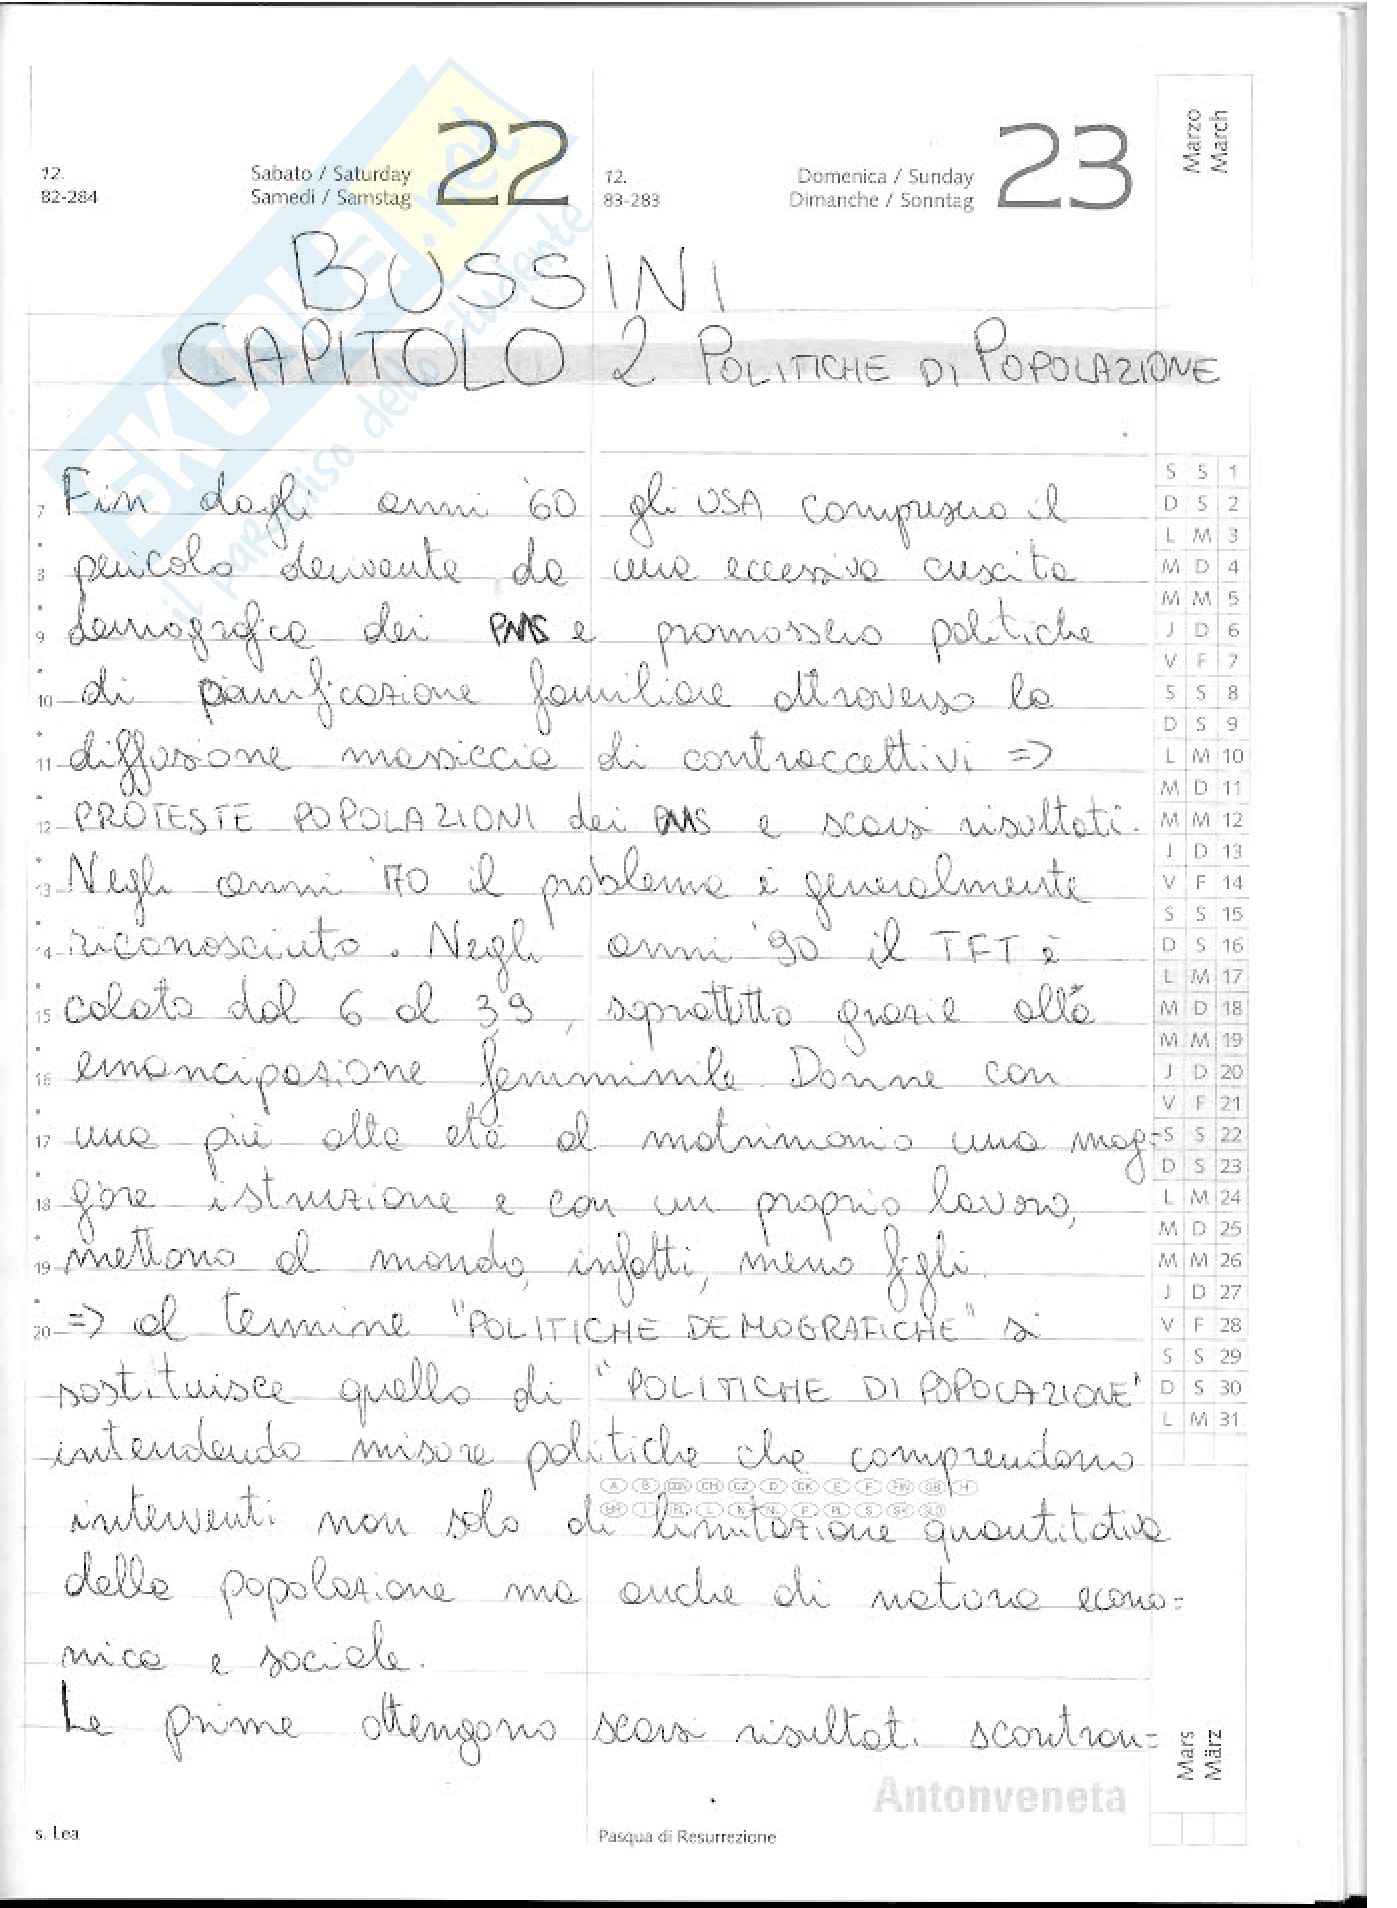 12.
82-284
Sabato / Saturday
Samedi / Samstag
22
12.
83-283
Domenica / Sunday
Dimanche / Sonntag
23
Marzo
March
SKUOLA.net
il paradiso dello studente
BUSSINI
CAPITOLO 2 POLITICHE DI POPOLAZIONE
Fin dagli anni '60 gli USA compresero il
pericolo derivante da una eccessiva crescita
demografica dei PMS e promossero politiche
di pianificazione familiare attraverso la
diffusione massiccia di contraccettivi =>
PROTESTE POPOLAZIONI dei PMS e scarsi risultati.
Negli anni '70 il problema è generalmente
riconosciuto. Negli anni '90 il TFT è
calato dal 6 al 3,9, soprattutto grazie alla
emancipazione femminile. Donne con
una più alta età al matrimonio una mag=
giore istruzione e con un proprio lavoro,
mettono al mondo, infatti, meno figli.
=> al termine "POLITICHE DEMOGRAFICHE" si
sostituisce quello di "POLITICHE DI POPOLAZIONE"
intendendo misure politiche che comprendono
interventi non solo di limitazione quantitativa
della popolazione ma anche di natura econo=
mica e sociale.
Le prime ottengono scarsi risultati scontran=
7
8
9
10
11
12
13
14
15
16
17
18
19
20
S S 1
D S 2
L M 3
M D 4
M M 5
J D 6
V F 7
S S 8
D S 9
L M 10
M D 11
M M 12
J D 13
V F 14
S S 15
D S 16
L M 17
M D 18
M M 19
J D 20
V F 21
S S 22
D S 23
L M 24
M D 25
M M 26
J D 27
V F 28
S S 29
D S 30
L M 31
A B CH CZ D DK E F FIN GB H
I L N NL P PL S SK SLO
Mars
März
Antonveneta
s. Lea
Pasqua di Resurrezione